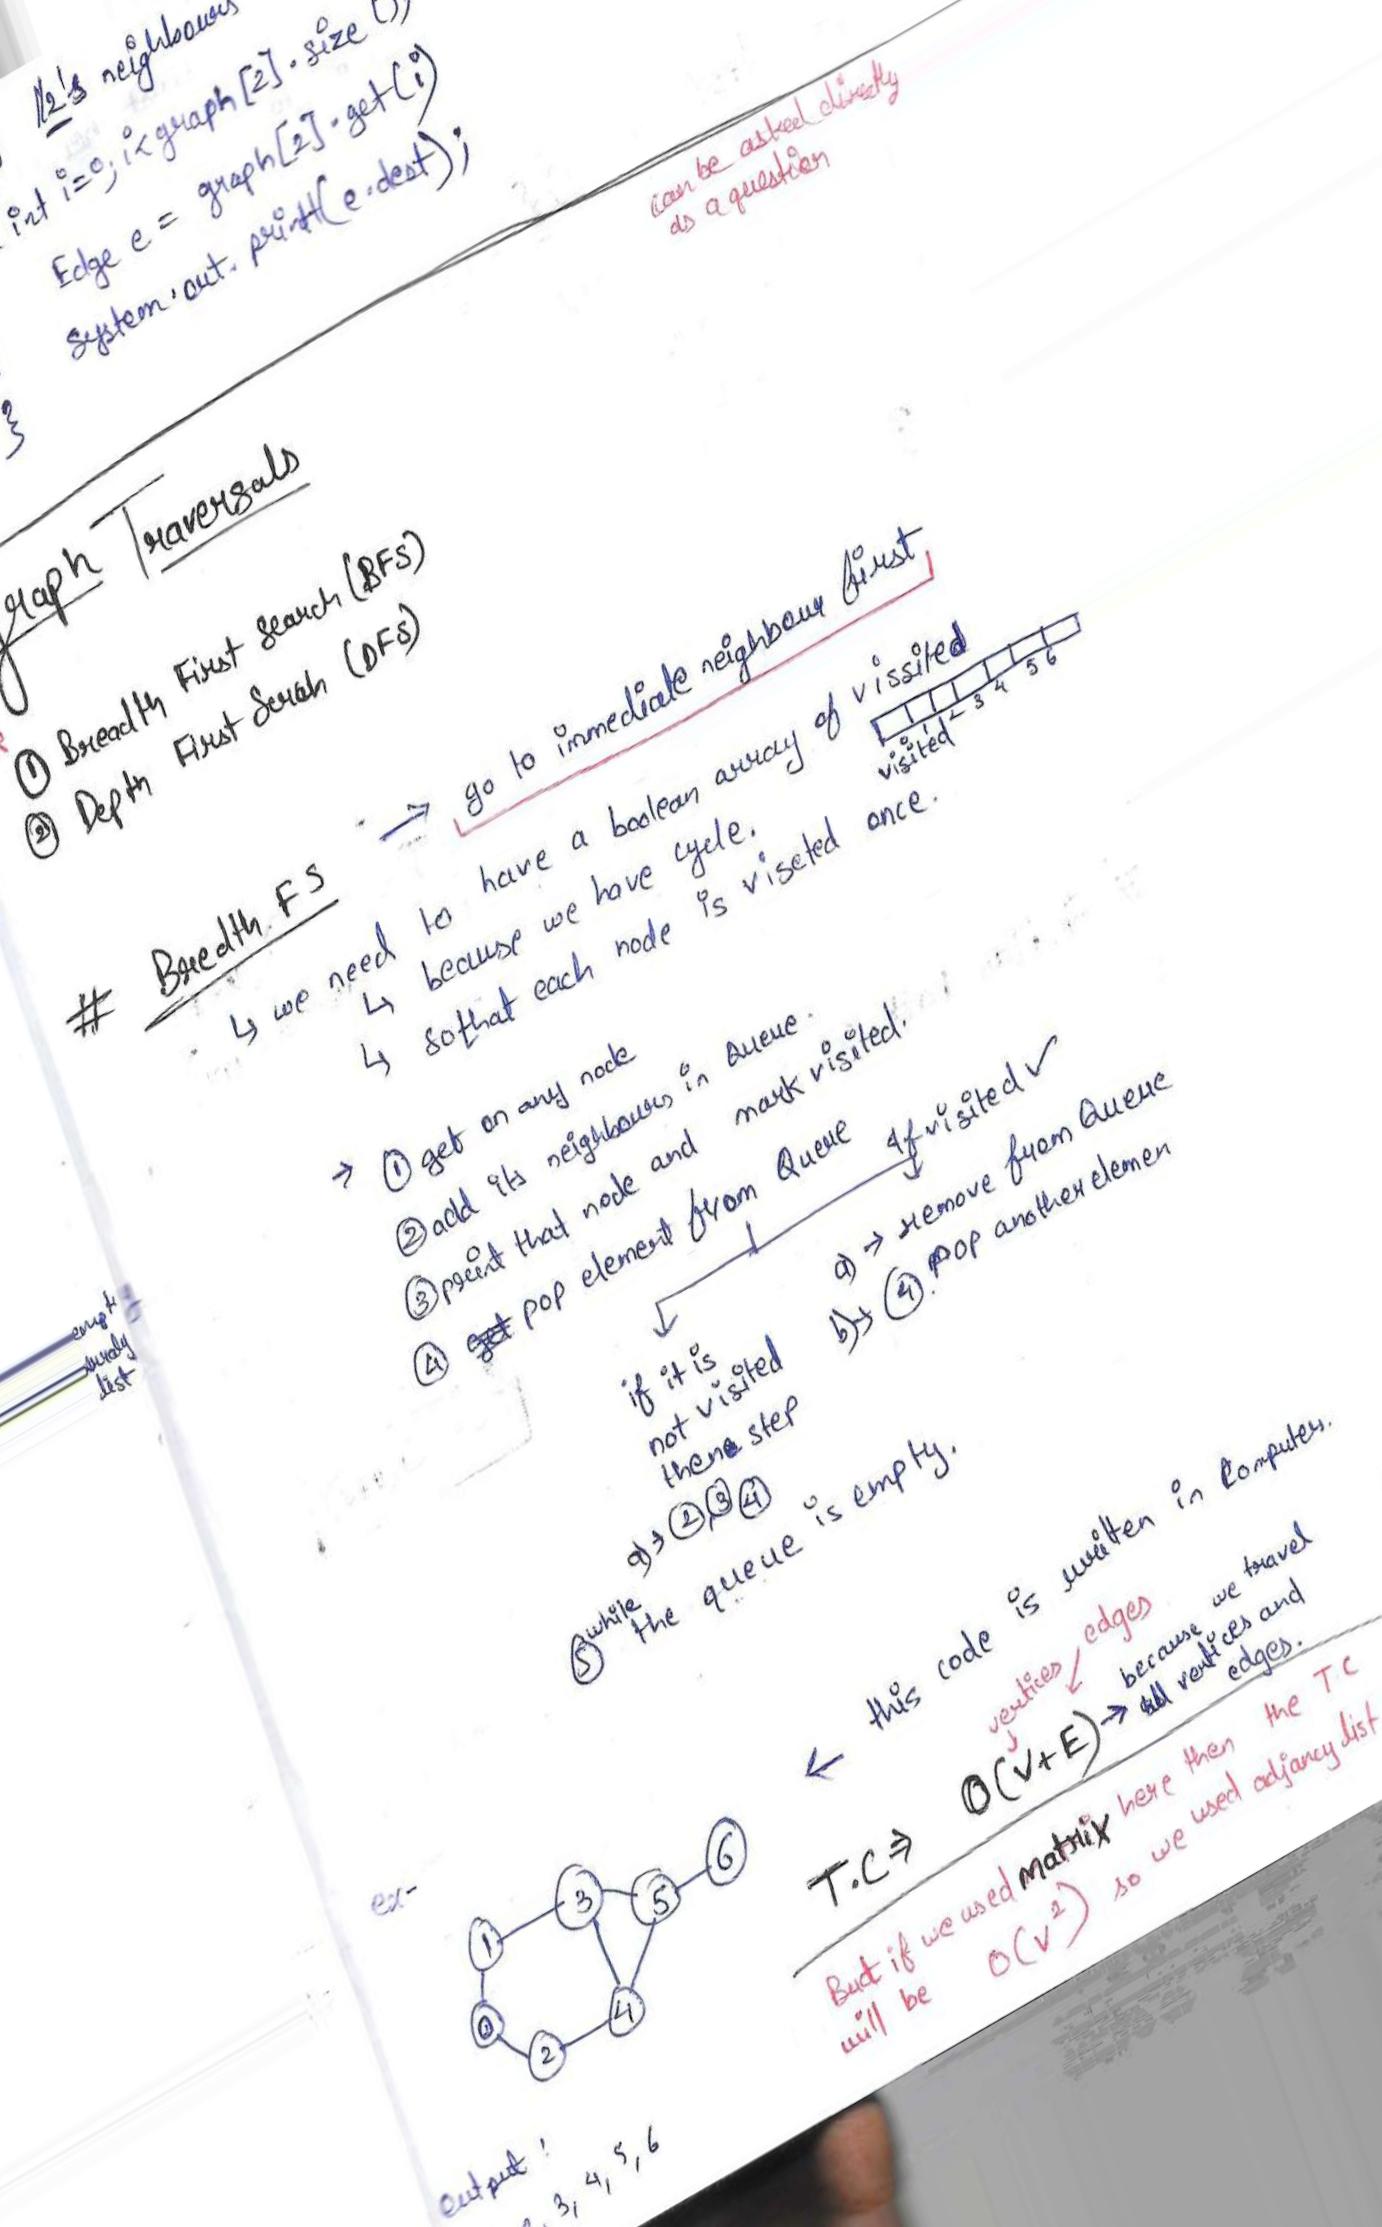 //2's neighbours
int i=0; i<graph[2].size()
Edge e = graph[2].get(i)
system.out.println(e.dest);
}
can be asked directly
as a question
graph Traversals
① Breadth First Search (BFS)
② Depth First Serah (DFS)
# Bredth FS → go to immediate neighbour first
↳ we need to have a boolean array of vissited
0 1 2 3 4 5 6
visited
↳ because we have cycle.
↳ sothat each node is viseted once.
→ ① get on any node
② add its neighbours in Queue.
③ print that node and mark visited.
④ get pop element from Queue
if visited ✓
a) → remove from Queue
b) → ④. pop another elemen
if it is
not visited
then step
a) → ② ③ ④
⑤ while the queue is empty.
← this code is written in Computer.
vertices edges
T.C ⇒ O(V+E) → because we travel
all vertices and
edges.
But if we used Matrix here then the TC
will be O(V²) so we used adjancy list
empty
list
ex-
1 3 5 6
0 2 4
output:
3, 4, 5, 6